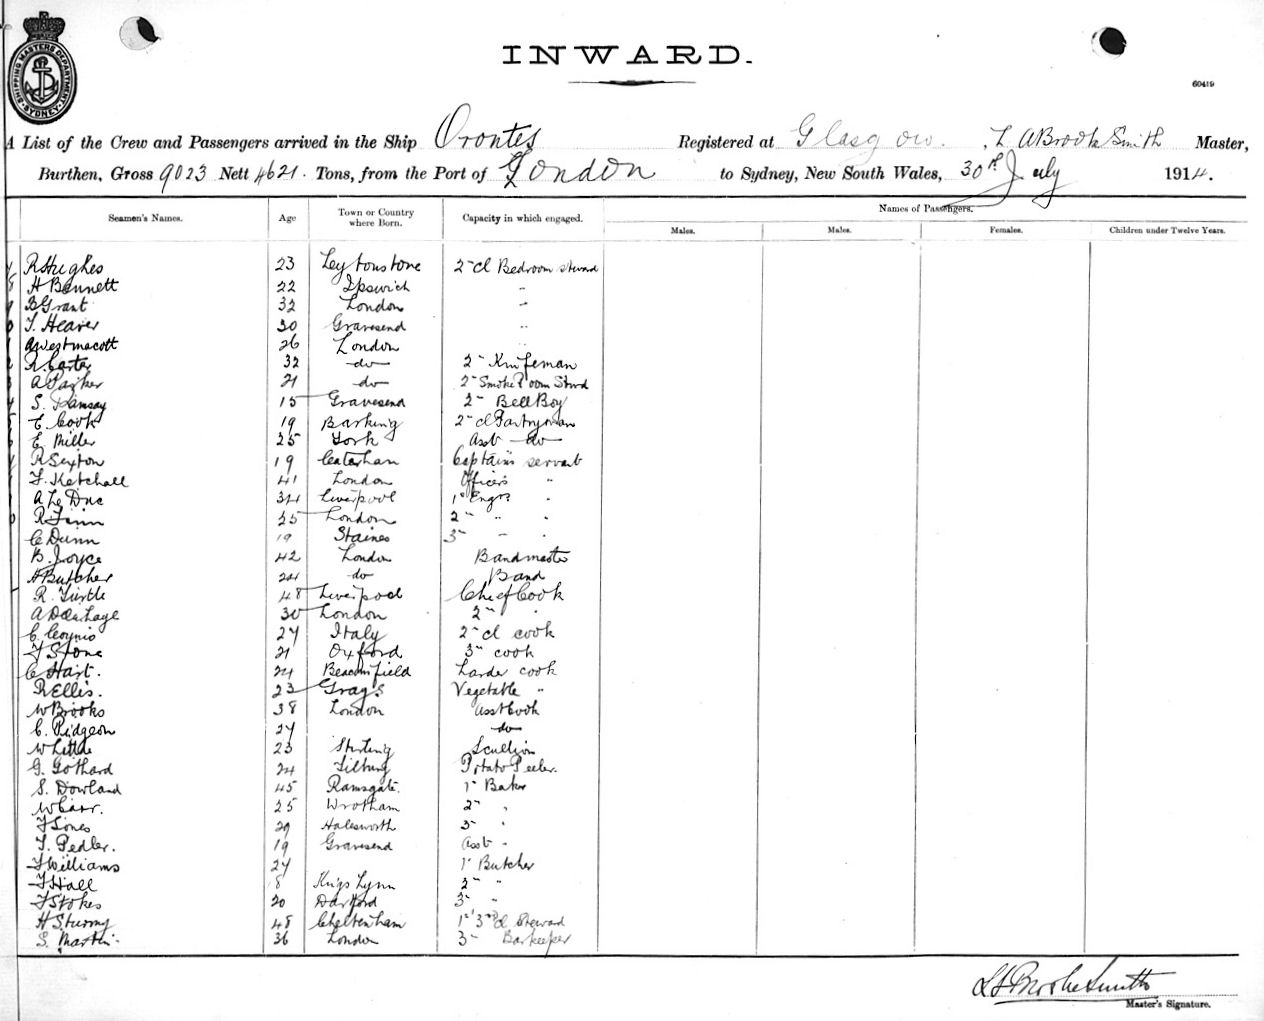 SHIPPING MASTERS DEPARTMENT SYDNEY
INWARD.
60419
A List of the Crew and Passengers arrived in the Ship Orontes Registered at Glasgow. Brooke Smith Master,
Burthen, Gross 9023 Nett 4621. Tons, from the Port of London to Sydney, New South Wales, 30th July 1914.
Seamen's Names. Age Town or Country where Born. Capacity in which engaged. Names of Passengers.
Males. Males. Females. Children under Twelve Years.
R Hughes 23 Leytonstone 2" Cl Bedroom steward
H Bennett 22 Ipswich "
B Grant 32 London "
T. Heaver 30 Gravesend "
A Westmacott 26 London "
R. Carter 32 do 2" Knifeman
A Parker 21 do 2" Smoke Room Stwd
S. Ramsay 15 Gravesend 2" Bell Boy
E. Cook 19 Barking 2" cl Pantryman
E Miller 25 York Asst do
R Sexton 19 Caterham Captain's servant
F. Ketchall 41 London Officers "
A Le Duc 34 Liverpool 1" Engrs "
R Finn 25 London 2" " "
C Dunn 19 Staines 3" " "
B. Joyce 42 London Bandmaster
H Butcher 24 do Band
R. Turtle 48 Liverpool Chief Cook
A 30 London 2" "
C. 27 Italy 2" cl cook
F Stone 21 Oxford 3" cook
C Hart. 24 Beaconsfield Larder cook
R Ellis. 23 Grays Vegetable "
W Brooks 38 London Asst Cook
C. Pidgeon 27 do
W Little 23 Stirling Scullion
G. Gothard 24 Tilbury Potato Peeler.
S. Dowland 45 Ramsgate. 1" Baker
W Carr. 25 Wrotham 2" "
F Jones 29 Halesworth 3" "
T. Pedler. 19 Gravesend Asst "
F Williams 27 1" Butcher
F Hall 8 Kings Lynn 2" "
F Stokes 20 Dartford 3" "
H Sturmy 48 Cheltenham 1" 3rd Cl Steward
S. Martin 36 London 3" Barkeeper
Brooke Smith
Master's Signature.